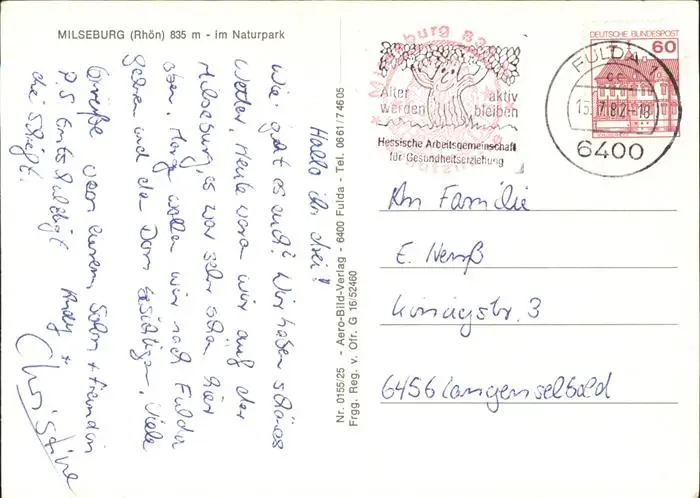 MILSEBURG (Rhön) 835 m - im Naturpark
Hallo ihr drei!
Wie geht es euch? Wir haben schönes
Wetter. Heute waren wir auf der
Milseburg, es war sehr schön hier
oben. Morgen wollen wir nach Fulda
gehen und den Dom besichtigen. Viele
Grüße von eurem Sohn + Freundin
Andy +
Christine
P.S.
die Schrift.
Nr. 0155/25 - Aero-Bild-Verlag - 6400 Fulda - Tel. 0661/74605
Frgg. Reg. v. Ofr. G 16/52460
Milseburg 835
Alter aktiv
werden bleiben
Hessische Arbeitsgemeinschaft
für Gesundheitserziehung
DEUTSCHE BUNDESPOST
60
FULDA 1
cc
15.-7.82-18
6400
An Familie
E.
Königstr. 3
6456 Langenselbold